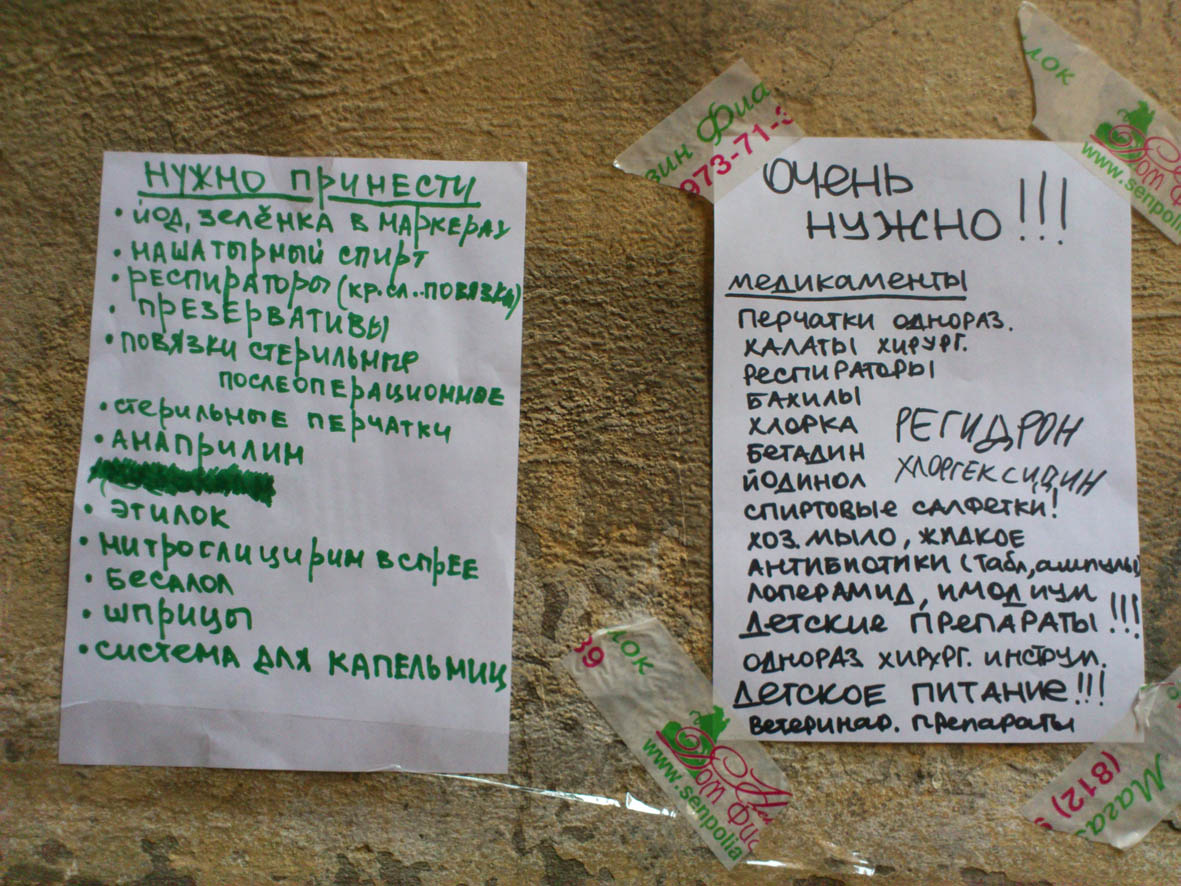 НУЖНО ПРИНЕСТИ
• ЙОД, ЗЕЛЁНКА В МАРКЕРАХ
• НАШАТЫРНЫЙ СПИРТ
• РЕСПИРАТОРЫ (КР.СЛ..ПОВЯЗКА)
• ПРЕЗЕРВАТИВЫ
• ПОВЯЗКИ СТЕРИЛЬНЫЕ
ПОСЛЕОПЕРАЦИОННОЕ
• СТЕРИЛЬНЫЕ ПЕРЧАТКИ
• АНАПРИЛИН
• ЭТИЛОК
• НИТРОГЛИЦИРИН В СПРЕЕ
• БЕСАЛОЛ
• ШПРИЦЫ
• СИСТЕМА ДЛЯ КАПЕЛЬНИЦ
ОЧЕНЬ
НУЖНО!!!
МЕДИКАМЕНТЫ
ПЕРЧАТКИ ОДНОРАЗ.
ХАЛАТЫ ХИРУРГ.
РЕСПИРАТОРЫ
БАХИЛЫ
ХЛОРКА
БЕТАДИН
ЙОДИНОЛ
РЕГИДРОН
ХЛОРГЕКСИЦИН
СПИРТОВЫЕ САЛФЕТКИ!
ХОЗ. МЫЛО, ЖИДКОЕ
АНТИБИОТИКИ (Табл, ампулы)
ЛОПЕРАМИД, ИМОДИУМ
ДЕТСКИЕ ПРЕПАРАТЫ!!!
ОДНОРАЗ ХИРУРГ. ИНСТРУМ.
ДЕТСКОЕ ПИТАНИЕ!!!
ветеринар. препараты
зин Фиа
973-71-3
лок
Дом
www.senpolia
лок
39
Дом Фиа
www.senpolia
Магаз
(812)